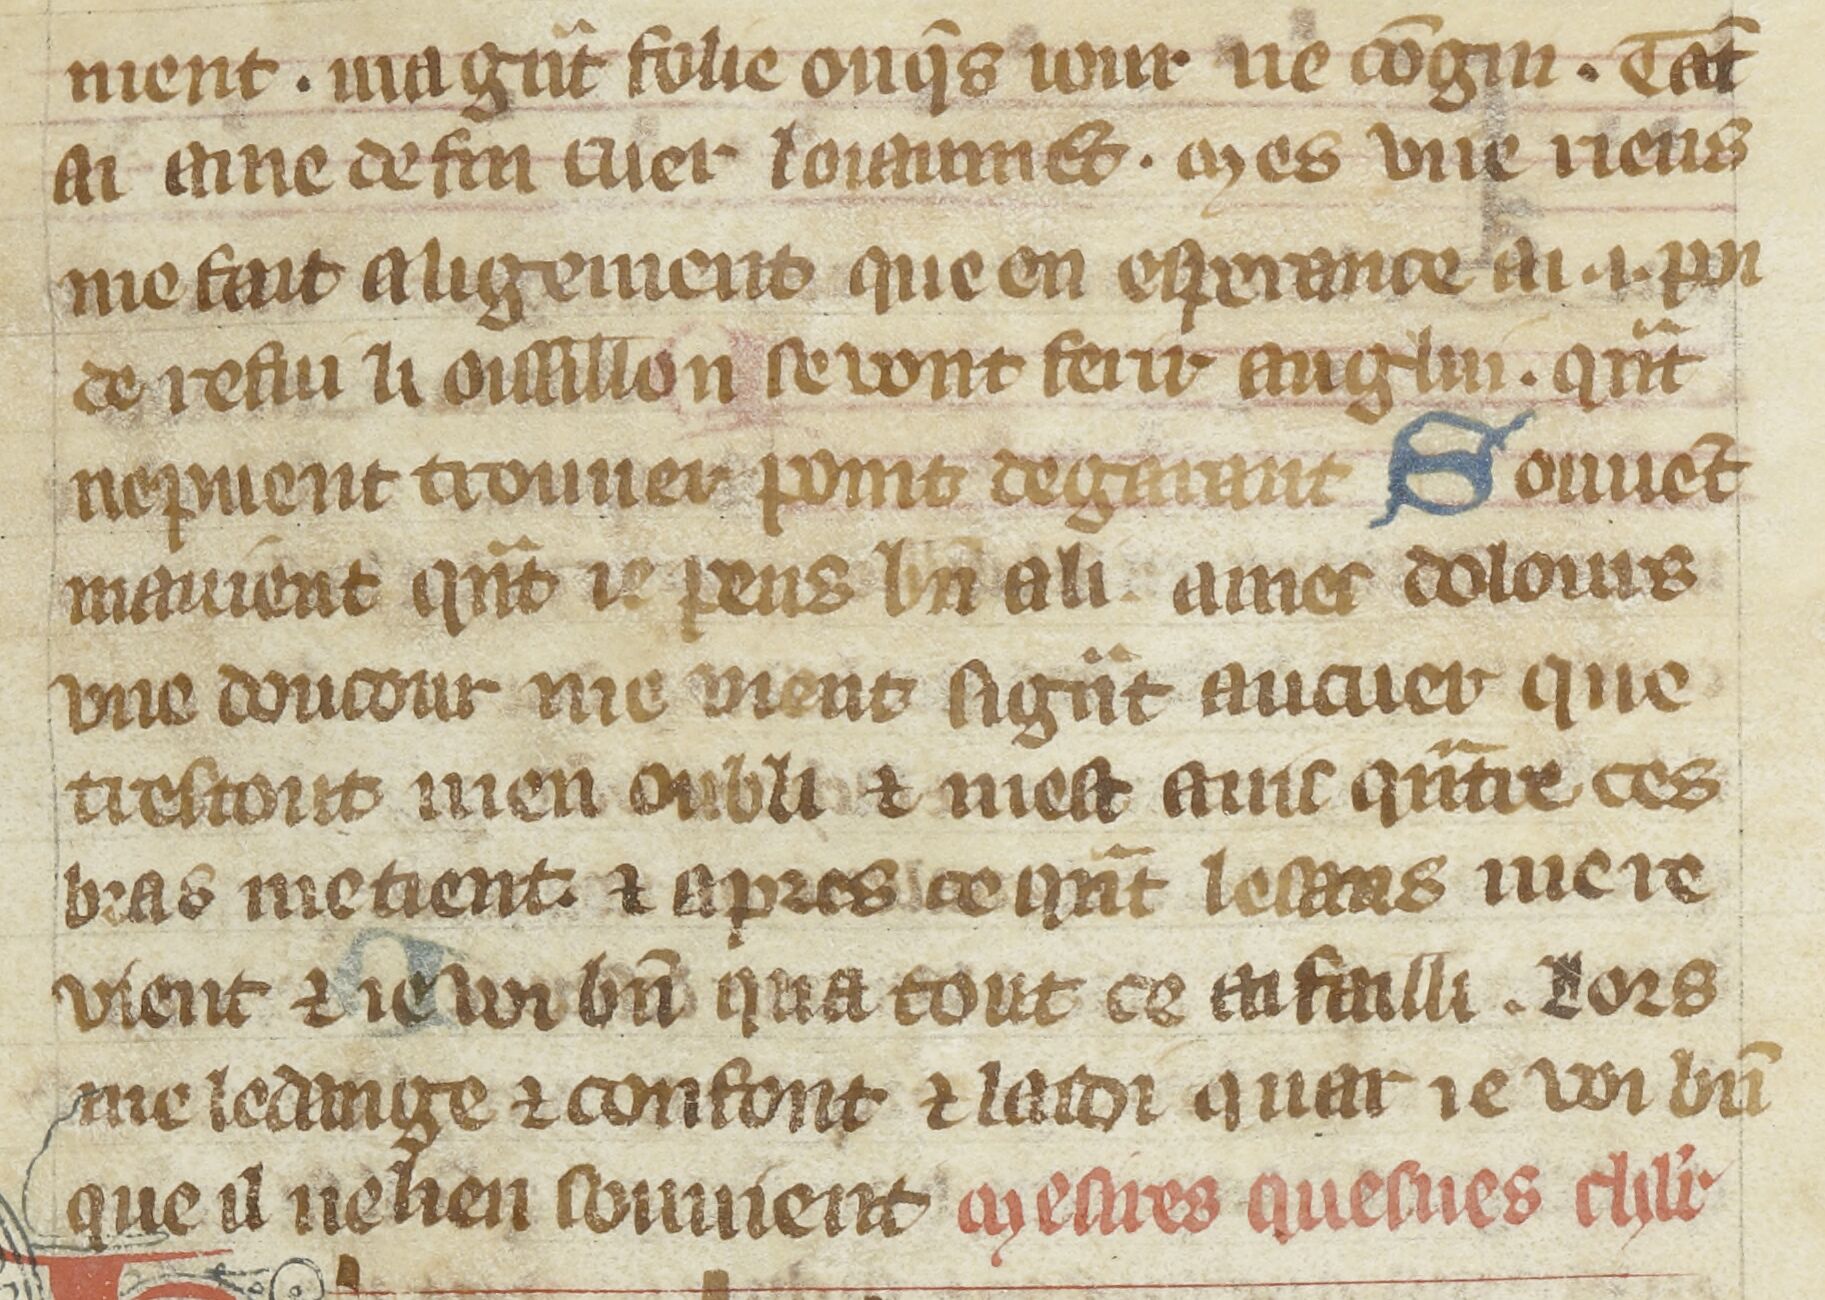 ment . ma gñt folie onq̄s voir ne cōgin . Tāt
ai ame de fin cuer loiaumēt . Mes vne riens
me fait aligement que en esperance ai .i. poi
de refiu li oisillon se vont ferir au glui . qñt
ne pueent trouuer point de garant Souuēt
mauient qñt ie pens bn̄ a li . ames dolours
vne doucour me vient si gñt au cuer que
trestout men oubli ⁊ mest auis qñtre ces
bras me tient . ⁊ apres ce qñt le sans me re
vient ⁊ ie voi bn̄ qua tout ce ai failli . Lors
me ledange ⁊ confont ⁊ laidi quar ie voi bn̄
que il ne lien souuient Mesires quesnes chlr̄